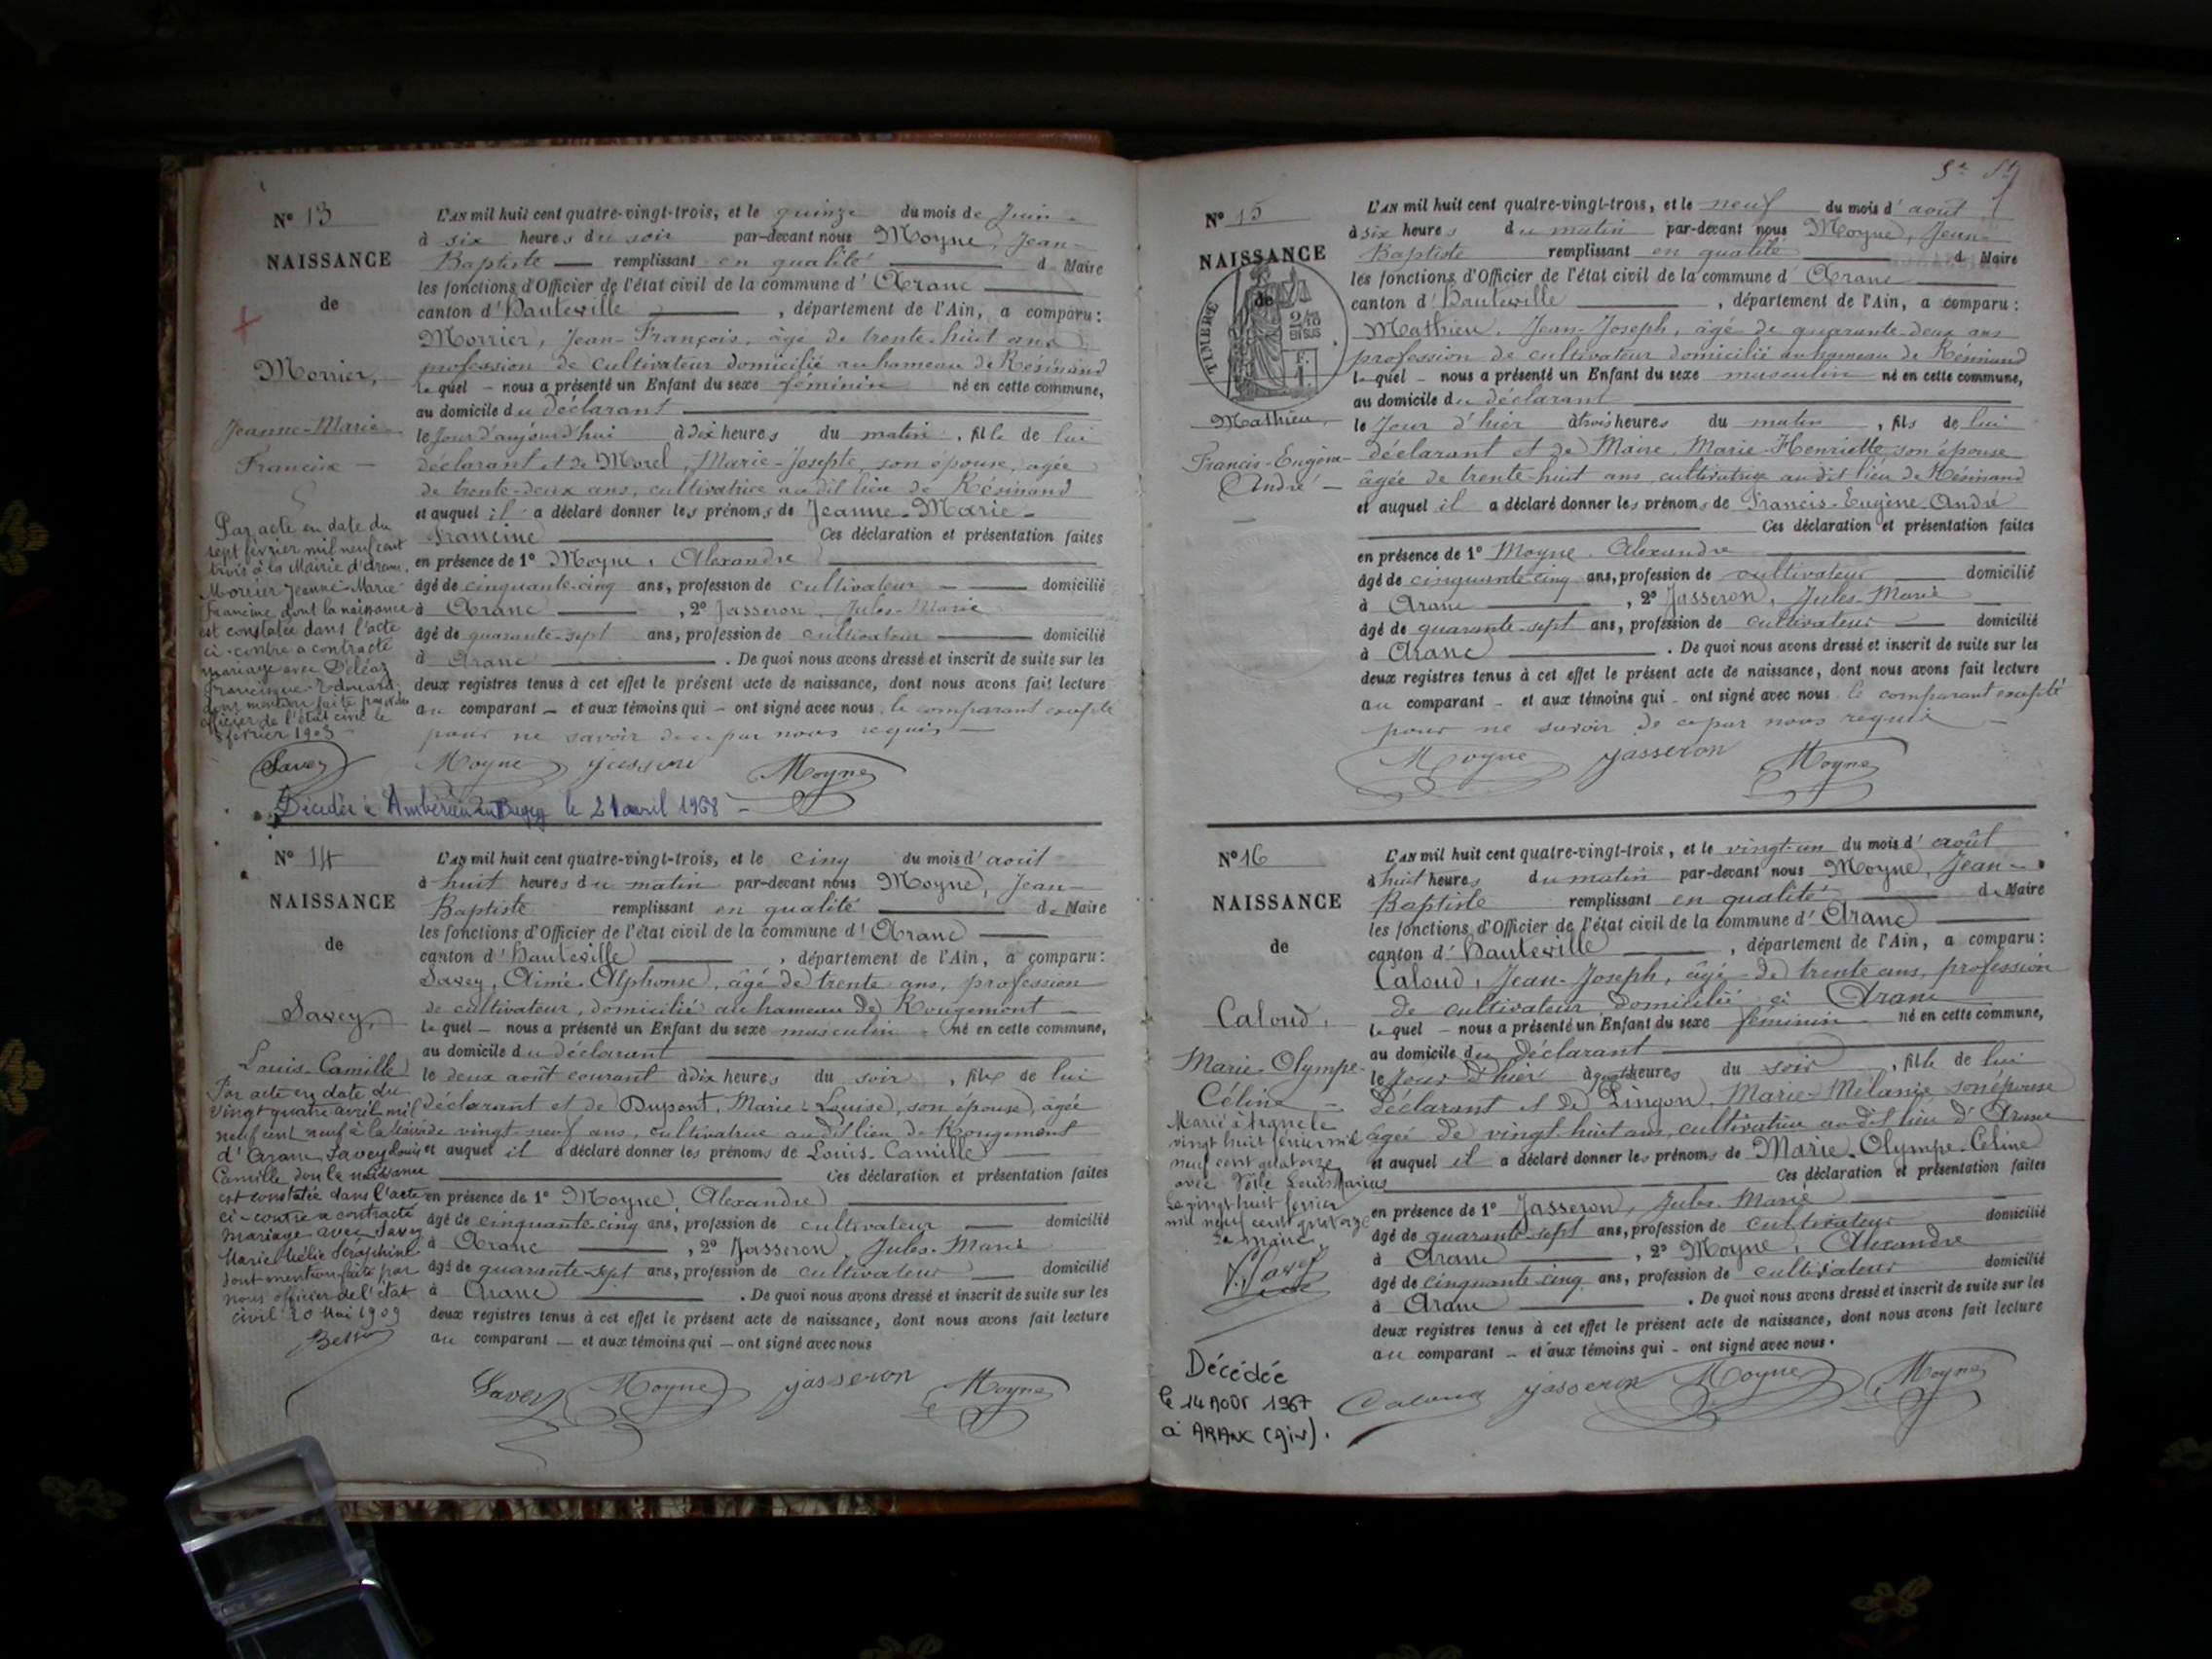 Nº 13
NAISSANCE
de
Morrier,
Jeanne-Marie
Francine
Par acte en date du
sept février mil neuf cent
trois à la Mairie d'Aranc
Morrier Jeanne-Marie
Francine dont la naissance
est constatée dans l'acte
ci-contre a contracté
mariage avec Déléaz
Francisque-Edouard
dont mention faite par nous
officier de l'état civil le
8 février 1903
Savey
L'AN mil huit cent quatre-vingt-trois, et le quinze du mois de Juin
à six heures du soir par-devant nous Moyne, Jean-
Baptiste remplissant en qualité de Maire
les fonctions d'Officier de l'état civil de la commune d'Aranc
canton d'Hauteville, département de l'Ain, a comparu :
Morrier, Jean-François, âgé de trente-huit ans
profession de cultivateur domicilié au hameau de Résinand
lequel nous a présenté un Enfant du sexe féminin né en cette commune,
au domicile du déclarant
le Jour d'aujourd'hui à dix heures du matin, fille de lui
déclarant et de Morel, Marie-Josephte, son épouse, agée
de trente-deux ans, cultivatrice au dit lieu de Résinand
et auquel il a déclaré donner les prénoms de Jeanne-Marie-
Francine Ces déclaration et présentation faites
en présence de 1º Moyne, Alexandre
âgé de cinquante-cinq ans, profession de cultivateur domicilié
à Aranc, 2º Jasseron, Jules-Marie
âgé de quarante-sept ans, profession de cultivateur domicilié
à Aranc. De quoi nous avons dressé et inscrit de suite sur les
deux registres tenus à cet effet le présent acte de naissance, dont nous avons fait lecture
au comparant et aux témoins qui ont signé avec nous, le comparant excepté
pour ne savoir de ce par nous requis
Moyne Jasseron Moyne
Décédée à Ambérieu en Bugey le 21 avril 1968
Nº 14
NAISSANCE
de
Savey,
Louis-Camille
Par acte en date du
vingt quatre avril mil
neuf cent neuf à la Mairie
d'Aranc Savey Louis
Camille dont la naissance
est constatée dans l'acte
ci-contre a contracté
mariage avec Savey
Marie Séraphine
dont mention faite par
nous officier de l'état
civil 20 Mai 1909
L'AN mil huit cent quatre-vingt-trois, et le cinq du mois d'août
à huit heures du matin par-devant nous Moyne, Jean-
Baptiste remplissant en qualité de Maire
les fonctions d'Officier de l'état civil de la commune d'Aranc
canton d'Hauteville, département de l'Ain, a comparu :
Savey, Aimé-Alphonse, âgé de trente ans, profession
de cultivateur, domicilié au hameau de Rougemont
lequel nous a présenté un Enfant du sexe masculin né en cette commune,
au domicile du déclarant
le deux août courant à dix heures du soir, fils de lui
déclarant et de Dupont, Marie-Louise, son épouse, âgée
de vingt-neuf ans, cultivatrice au dit lieu de Rougemont
et auquel il a déclaré donner les prénoms de Louis-Camille
Ces déclaration et présentation faites
en présence de 1º Moyne, Alexandre
âgé de cinquante-cinq ans, profession de cultivateur domicilié
à Aranc, 2º Jasseron, Jules-Marie
âgé de quarante-sept ans, profession de cultivateur domicilié
à Aranc. De quoi nous avons dressé et inscrit de suite sur les
deux registres tenus à cet effet le présent acte de naissance, dont nous avons fait lecture
au comparant et aux témoins qui ont signé avec nous
Savey Moyne Jasseron Moyne
Nº 15
NAISSANCE
de
TIMBRE
2/10 EN SUS
Mathieu,
Francis-Eugène-
André
L'AN mil huit cent quatre-vingt-trois, et le neuf du mois d'août
à six heures du matin par-devant nous Moyne, Jean-
Baptiste remplissant en qualité de Maire
les fonctions d'Officier de l'état civil de la commune d'Aranc
canton d'Hauteville, département de l'Ain, a comparu :
Mathieu, Jean-Joseph, âgé de quarante-deux ans
profession de cultivateur domicilié au hameau de Résinand
lequel nous a présenté un Enfant du sexe masculin né en cette commune,
au domicile du déclarant
le Jour d'hier à trois heures du matin, fils de lui
déclarant et de Maire, Marie-Henriette, son épouse
âgée de trente-huit ans, cultivatrice au dit lieu de Résinand
et auquel il a déclaré donner les prénoms de Francis-Eugène-André
Ces déclaration et présentation faites
en présence de 1º Moyne, Alexandre
âgé de cinquante-cinq ans, profession de cultivateur domicilié
à Aranc, 2º Jasseron, Jules-Marie
âgé de quarante-sept ans, profession de cultivateur domicilié
à Aranc. De quoi nous avons dressé et inscrit de suite sur les
deux registres tenus à cet effet le présent acte de naissance, dont nous avons fait lecture
au comparant et aux témoins qui ont signé avec nous le comparant excepté
pour ne savoir de ce par nous requis
Moyne Jasseron Moyne
Nº 16
NAISSANCE
de
Caloud,
Marie-Olympe-
Céline
Marié à Aranc le
vingt huit février mil
neuf cent quatorze
avec Louis Marius
Le vingt huit février
mil neuf cent quatorze
Le Maire,
Décédée
le 14 AOÛT 1967
à ARANC (Ain).
L'AN mil huit cent quatre-vingt-trois, et le vingt-un du mois d'août
à huit heures du matin par-devant nous Moyne, Jean-
Baptiste remplissant en qualité de Maire
les fonctions d'Officier de l'état civil de la commune d'Aranc
canton d'Hauteville, département de l'Ain, a comparu :
Caloud, Jean-Joseph, âgé de trente ans, profession
de cultivateur domicilié à Aranc
lequel nous a présenté un Enfant du sexe féminin né en cette commune,
au domicile du déclarant
le Jour d'hier à quatre heures du soir, fille de lui
déclarant et de Pingon, Marie-Mélanie, son épouse
âgée de vingt-huit ans, cultivatrice au dit lieu d'Aranc
et auquel il a déclaré donner les prénoms de Marie-Olympe-Céline
Ces déclaration et présentation faites
en présence de 1º Jasseron, Jules-Marie
âgé de quarante-sept ans, profession de cultivateur domicilié
à Aranc, 2º Moyne, Alexandre
âgé de cinquante-cinq ans, profession de cultivateur domicilié
à Aranc. De quoi nous avons dressé et inscrit de suite sur les
deux registres tenus à cet effet le présent acte de naissance, dont nous avons fait lecture
au comparant et aux témoins qui ont signé avec nous.
Caloud Jasseron Moyne Moyne